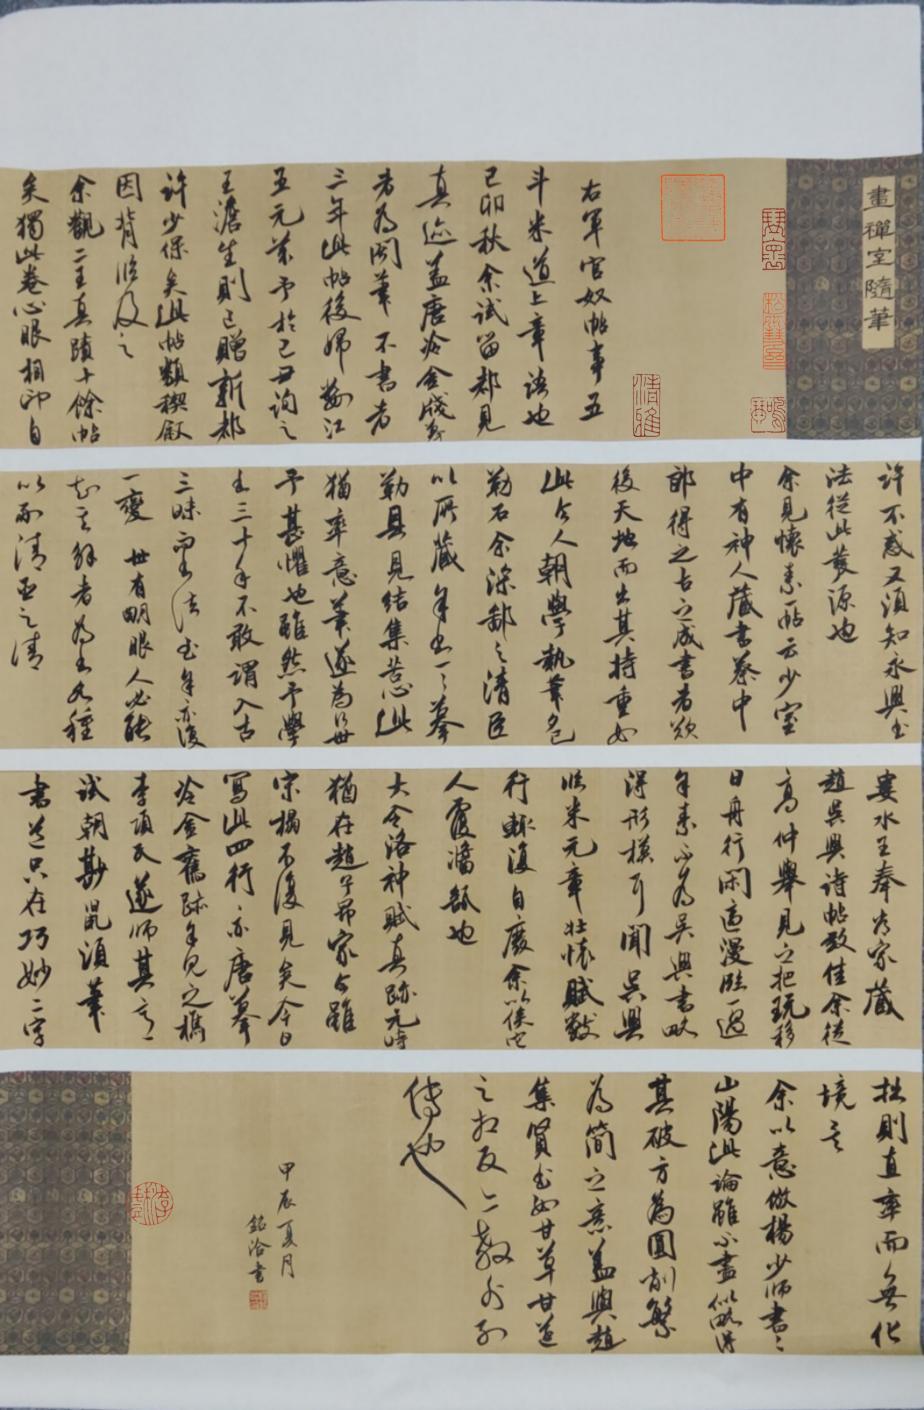 畫禪室隨筆
右軍官奴帖事五
斗米道上章語也
己卯秋余試留都見
真迹蓋唐冷金牋摹
者為閣筆不書者
三年此帖後歸婁江
王元美予於己丑詢之
王澹生則已贈新都
許少保矣此帖類禊敘
因背臨及之
余觀二王真蹟十餘帖
矣獨此卷心眼相印自
許不惑又須知永興書
法從此發源也
余見懷素一帖云少室
中有神人藏書蔡中
郎得之古之成書者欲
後天地而出其持重如
此今人朝學執筆夕已
勒石余深鄙之清臣
以所藏余書一一摹
勒具見結集苦心此
猶率意筆遂為行世
予甚懼也雖然予學
書三十年不敢謂入古
三昧而書法至余亦復
一變世有明眼人必能
知其解者為書各種
以副清臣之請
婁水王奉常家藏
趙吳興詩帖致佳余從
高仲舉見之把玩移
日舟行閑適漫臨一過
余素不為吳興書略
得形模耳聞吳興
臨米元章壯懷賦數
行輒復自廢余以俟它
人覆醬瓿也
大令洛神賦真跡元時
猶在趙子昂家今雖
宋搨不復見矣今日
寫此四行亦唐摹
冷金舊跡余見之樵
李項氏遂師其意
試朝鮮鼠須筆
書道只在巧妙二字
拙則直率而無化
境矣
余以意倣楊少師書書
山陽此論雖不盡似略得
其破方為圓削繁
為簡之意蓋與趙
集賢書如甘草甘遂
之相反亦教外別
傳也
甲辰夏月
銘洽書